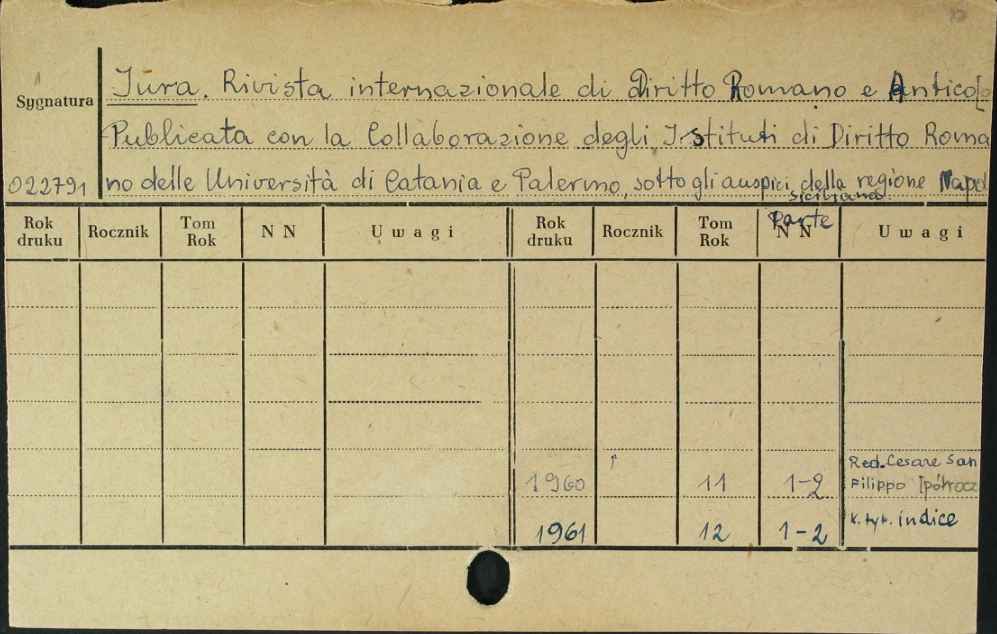 Jura. Rivista internazionale di Diritto Romano e Antico
Sygnatura
Publicata con la Collaborazione degli Istituti di Diritto Roma
022791 no delle Università di Catania e Palermo, sotto gli auspici della regione Napol
siciliana.
Parte
Rok druku Rocznik Tom Rok N N U w a g i Rok druku Rocznik Tom Rok N N U w a g i
Red. Cesare San
1960 11 1-2 Filippo [półrocz
1961 12 1-2 K. tyt. indice